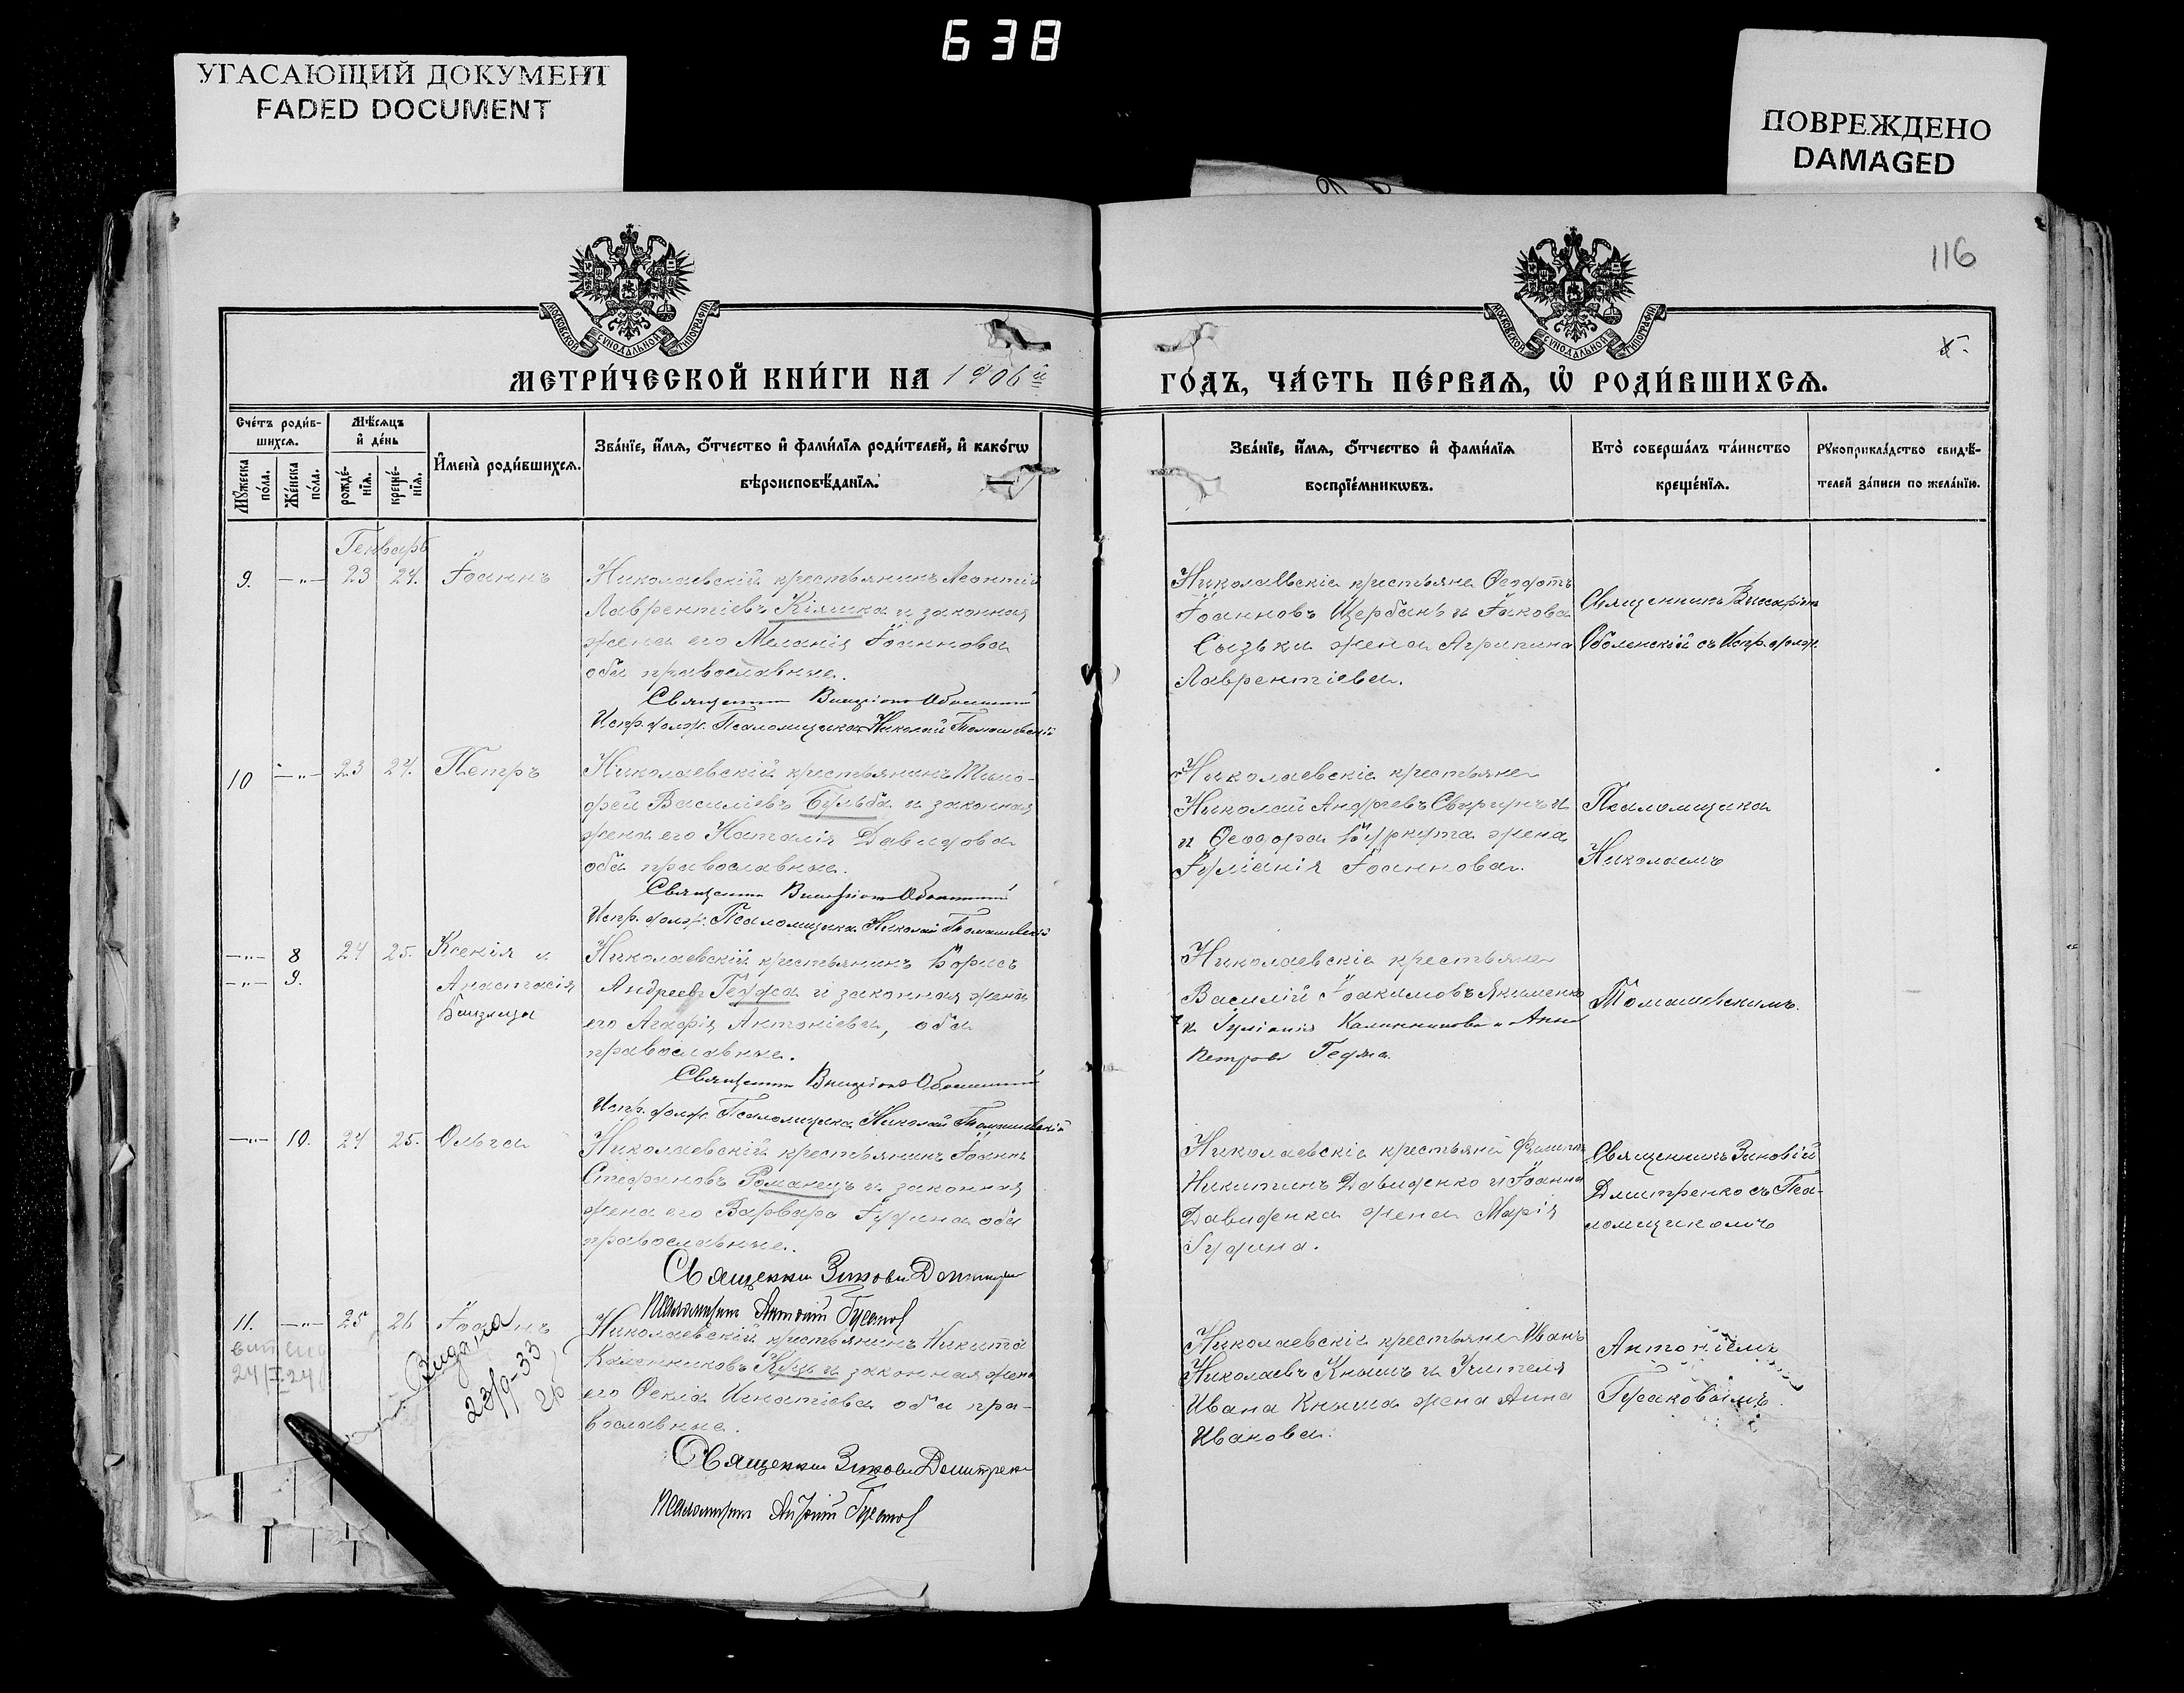 638
УГАСАЮЩИЙ ДОКУМЕНТ
FADED DOCUMENT
ПОВРЕЖДЕНО
DAMAGED
116
МОСКОВСКОЙ СУНОДАЛЬНОЙ ТИПОГРАФІИ
МОСКОВСКОЙ СУНОДАЛЬНОЙ ТИПОГРАФІИ
МЕТРИ́ЧЕСКОЙ КНИ́ГИ НА 1906й
ГО́ДЪ, ЧА́СТЬ ПЕ́РВАЯ, Ѡ҆ РОДИ́ВШИХСЯ.
Сче́тъ роди́в-
шихся.
Мѣ́сяцъ
и҆ де́нь
Мꙋ́жеска по́ла.
Же́нска по́ла.
рожде́-
нїя.
креще́-
нїя.
И҆мена̀ роди́вшихся.
Зва́нїе, и҆́мя, ѻ҆́тчество и҆ фами́лїя роди́телей, и҆ како́гѡ
вѣроисповѣ́данїя.
Зва́нїе, и҆́мя, ѻ҆́тчество и҆ фами́лїя
воспрїе́мникѡвъ.
Кто̀ соверша́лъ та́инство
креще́нїя.
Рꙋкоприкла́дство свидѣ́-
телей за́писи по жела́нїю.
Генварь
9. —"— 23 24. Іоаннъ
Николаевскій крестьянинъ Леонтій
Лаврентіевъ Кіяшка и законная
жена его Меланія Іоаннова
оба православные.
Священникъ Виссаріонъ Оболенскій
Испр. долж. Псаломщика Николай Томашевскій
Николаевскіе крестьяне Ѳеодотъ
Іоанновъ Щербань и Іакова
Сызька жена Агрипина
Лаврентіева.
Священникъ Виссаріонъ
Оболенскій съ Испр. долж.
10 —"— 23 24. Петръ
Николаевскій крестьянинъ Тимо-
фей Василіевъ Бульба и законная
жена его Наталія Давидова
оба православные.
Священникъ Виссаріонъ Оболенскій
Испр. долж. Псаломщика Николай Томашевскій
Николаевскіе крестьяне
Николай Андреевъ и
и Ѳеодора жена
Іуліанія Іоаннова.
Псаломщика
Николаемъ
—"— 8 24 25. Ксенія и
—"— 9. Анастасія
Близнецы
Николаевскій крестьянинъ Борисъ
Андреевъ Гедза и законная жена
его Агафія Антоніева, оба
православные.
Священникъ Виссаріонъ Оболенскій
Испр. долж. Псаломщика Николай Томашевскій
Николаевскіе крестьяне
Василій Іоакимовъ Якименко
и Іуліанія Калинникова и Анна
Петрова
Томашевскимъ.
—"— 10. 24 25. Ольга
Николаевскій крестьянинъ Іоаннъ
Стефановъ Романецъ и законная
жена его Варвара Іудина оба
православные.
Священникъ Зиновій Дмитренко
Псаломщикъ Антоній Гусаковъ
Николаевскіе крестьяне Филиппъ
Никитинъ Давиденко и Іоанна
Давиденка жена Марія
Іудина.
Священникъ Зиновій
Дмитренко съ Пса-
ломщикомъ
11. —"— 25 26 Іоаннъ
24/I 24
Видана
23/9-33
Николаевскій крестьянинъ Никита
Калинниковъ Куць и законная жена
его Ѳекла Игнатіева оба пра-
вославные.
Священникъ Зиновій Дмитренко
Псаломщикъ Антоній Гусаковъ
Николаевскіе крестьяне Иванъ
Николаевъ Кнышъ и Учителя
Ивана Кныша жена Анна
Иванова.
Антоніемъ
Гусаковымъ.